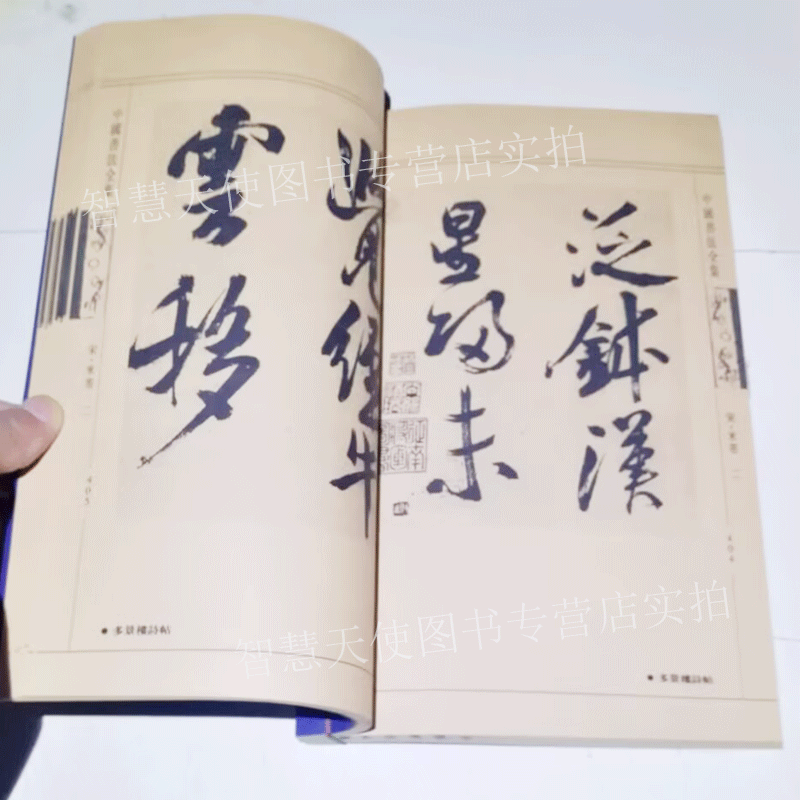 泛鉢漢
星歸未
經牛
雲移
中國書法全集
宋·米芾 二
405
●多景樓詩帖
中國書法全集
●多景樓詩帖
智慧天使图书专营店实拍
智慧天使图书专营店实拍